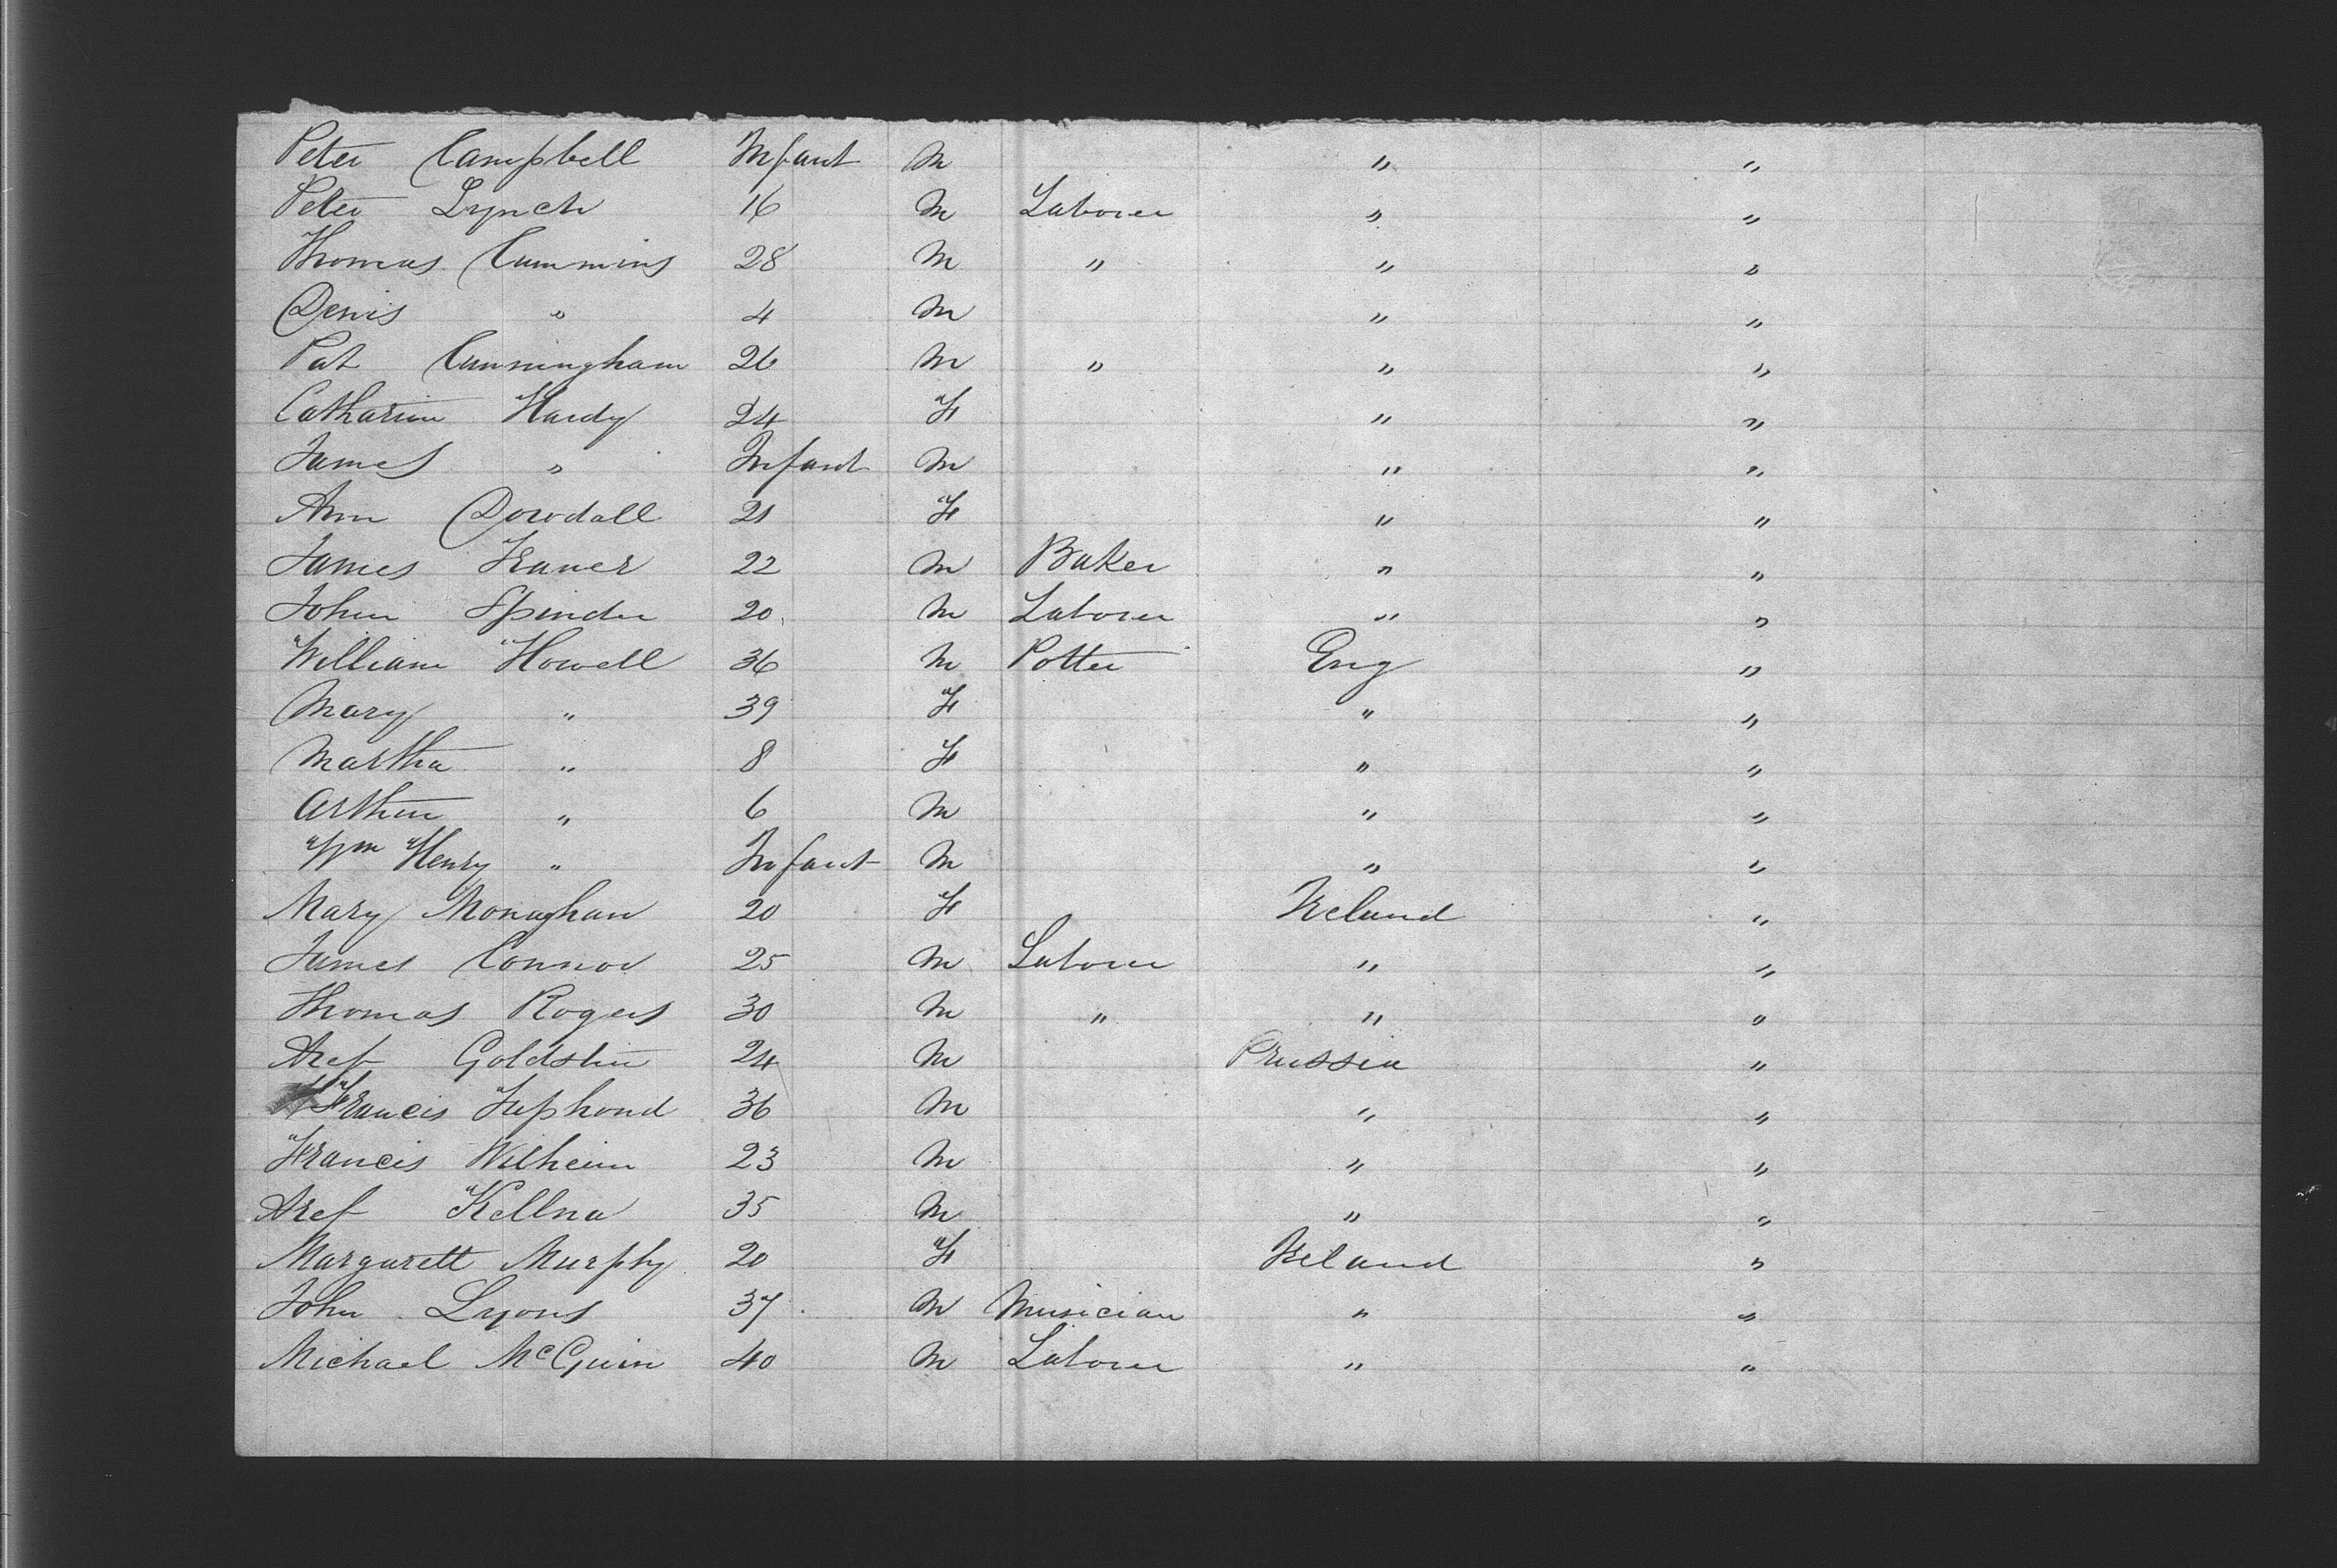 Peter Campbell Infant M " "
Peter Lynch 16 M Laborer " "
Thomas Cummins 28 M " " "
Denis " 4 M " "
Pat Cunningham 26 M " " "
Catharine Hardy 24 F " "
James " Infant M " "
Ann Dowdall 21 F " "
James 22 M Baker " "
John 20 M Laborer " "
William Howell 36 M Potter Eng "
Mary " 39 F " "
Martha " 8 F " "
Arthur " 6 M " "
Wm Henry " Infant M " "
Mary Monaghan 20 F Ireland "
James Connor 25 M Laborer " "
Thomas Rogers 30 M " " "
Goldstin 24 M Prussia "
Francis 36 M " "
Francis Wilheim 23 M " "
Kellna 35 M " "
Margarett Murphy 20 F Ireland "
John Lyons 37 M Musician " "
Michael McGuin 40 M Laborer " "